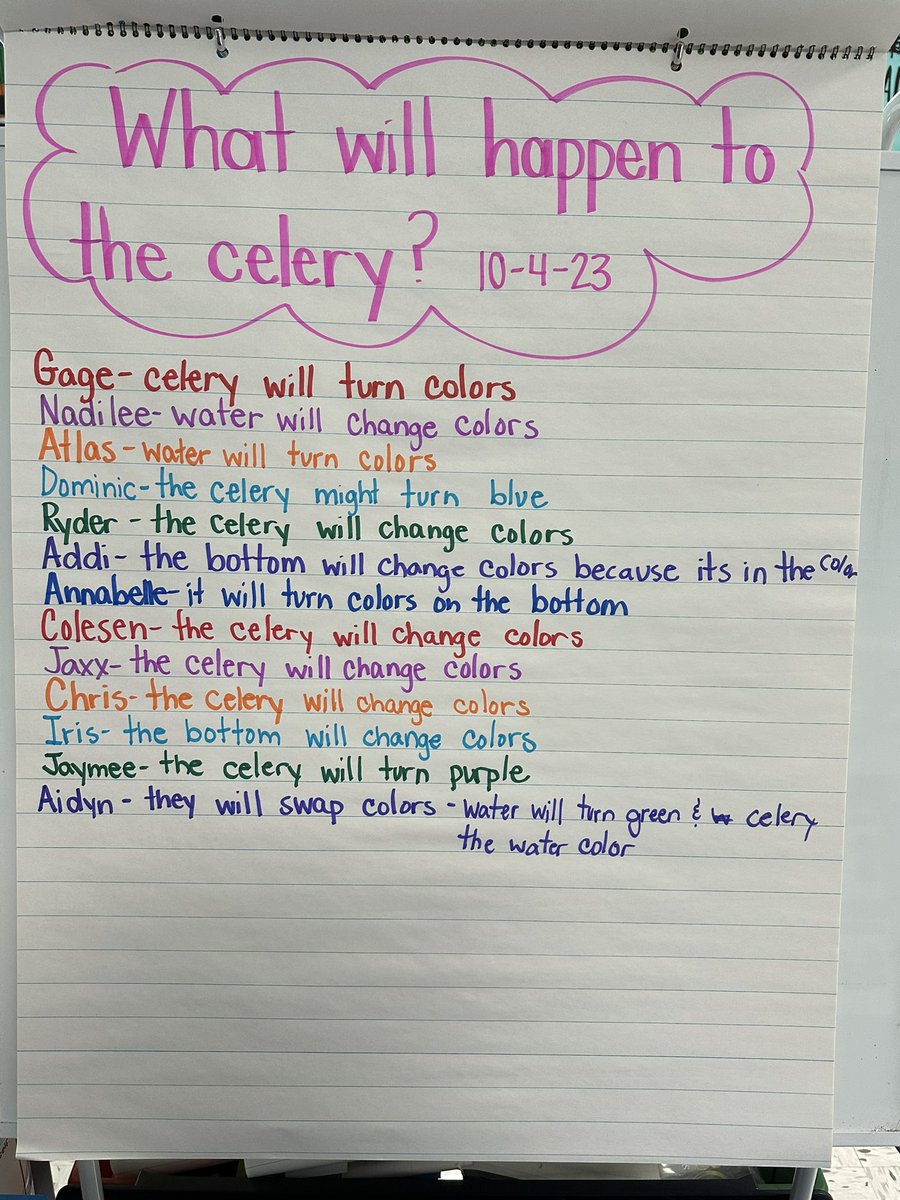 What will happen to
the celery? 10-4-23
Gage- celery will turn colors
Nadilee- water will change colors
Atlas - water will turn colors
Dominic- the celery might turn blue
Ryder - the celery will change colors
Addi- the bottom will change colors because its in the color
Annabelle- it will turn colors on the bottom
Colesen- the celery will change colors
Jaxx- the celery will change colors
Chris- the celery will change colors
Iris- the bottom will change colors
Jaymee- the celery will turn purple
Aidyn - they will swap colors - water will turn green & celery
the water color